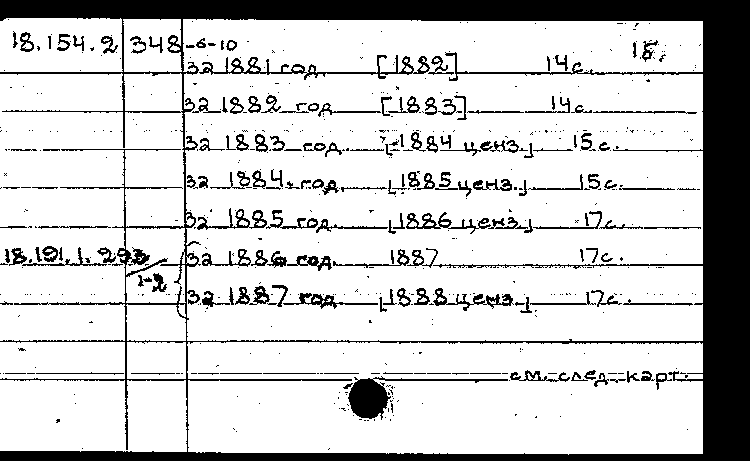 18.154.2 348-6-10 15.
за 1881 год. [1882] 14с.
за 1882 год [1883] 14с.
за 1883 год. [1884 ценз.] 15с.
за 1884. год. [1885 ценз.] 15с.
за 1885 год. [1886 ценз.] 17с.
18.191.1.293 за 1886 год. 1887 17с.
1-2 за 1887 год [1888 ценз.] 17с.
см. след. карт.